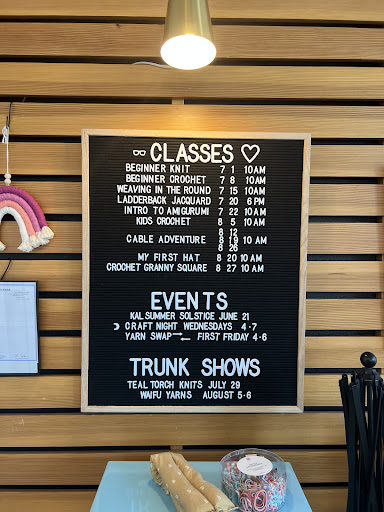 CLASSES
BEGINNER KNIT 7 1 10AM
BEGINNER CROCHET 7 8 10AM
WEAVING IN THE ROUND 7 15 10AM
LADDERBACK JACQUARD 7 20 6PM
INTRO TO AMIGURUMI 7 22 10AM
KIDS CROCHET 8 5 10AM
8 12
CABLE ADVENTURE 8 19 10 AM
8 26
MY FIRST HAT 8 20 10 AM
CROCHET GRANNY SQUARE 8 27 10 AM
EVENTS
KAL SUMMER SOLSTICE JUNE 21
CRAFT NIGHT WEDNESDAYS 4-7
YARN SWAP FIRST FRIDAY 4-6
TRUNK SHOWS
TEAL TORCH KNITS JULY 29
WAIFU YARNS AUGUST 5-6